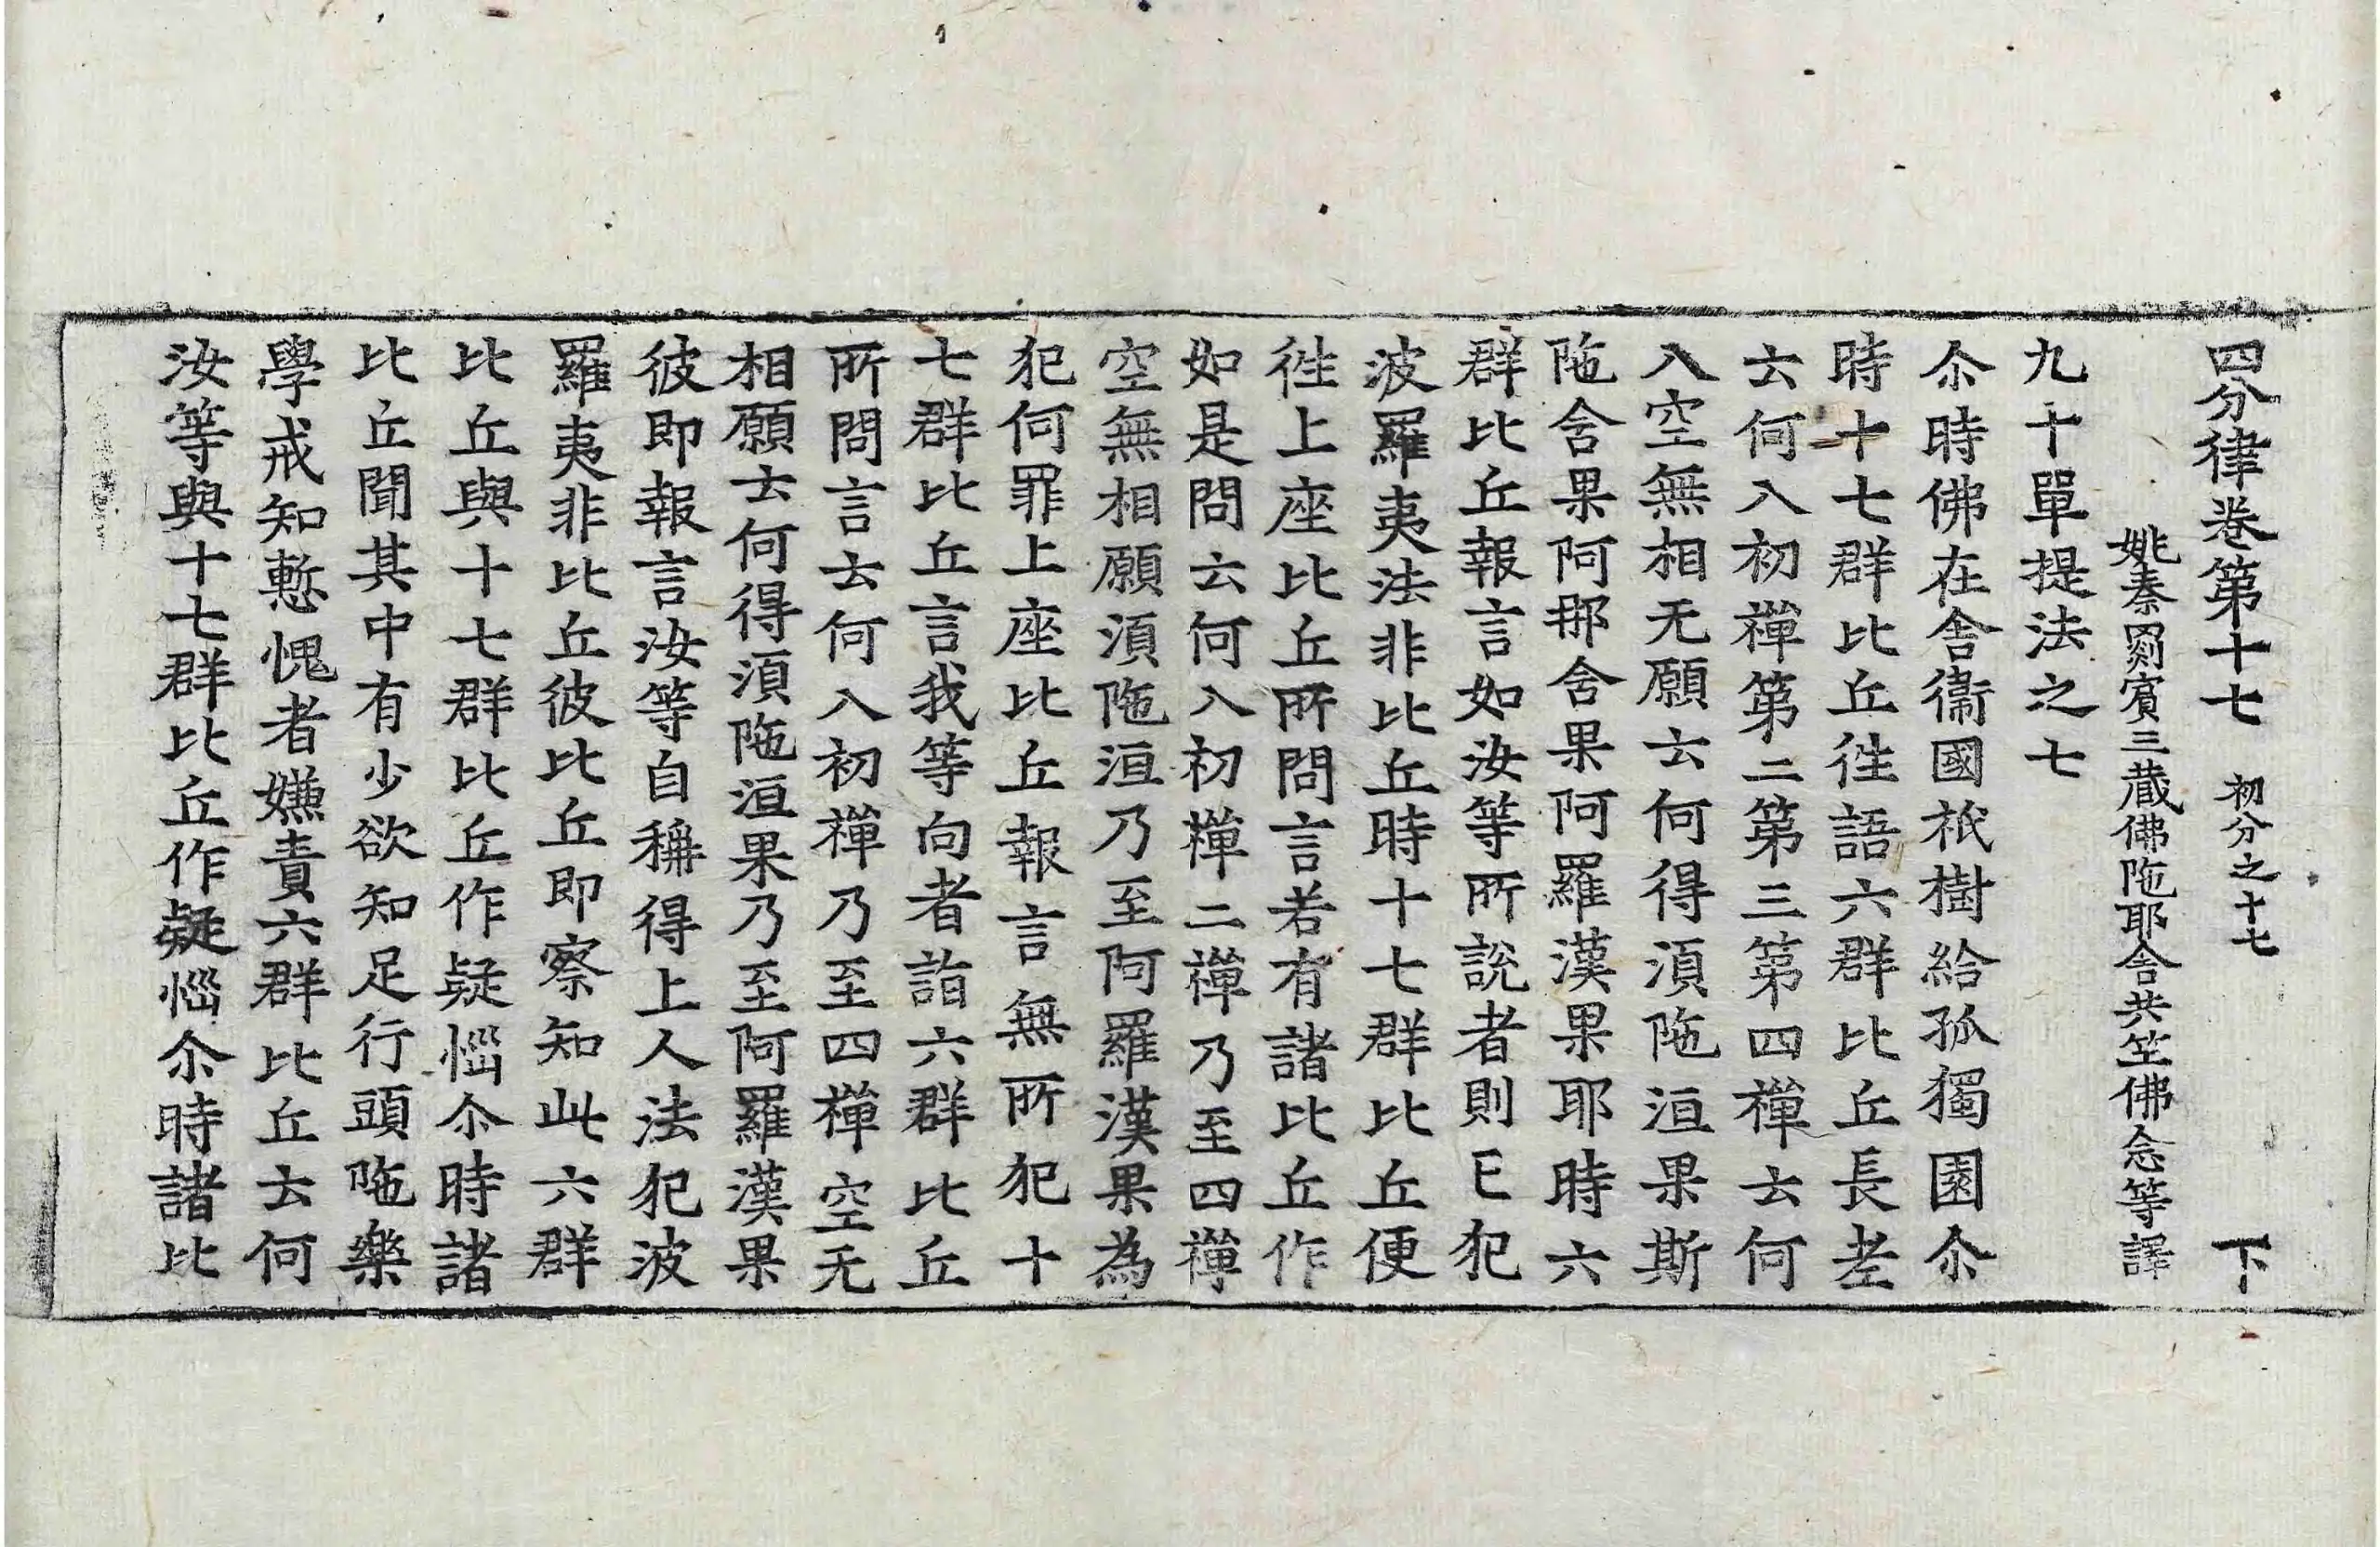 四分律卷第十七 初分之十七 下
姚秦罽賓三藏佛陁耶舍共竺佛念等譯
九十單提法之七
尒時佛在舍衞國祇樹給孤獨園尒
時十七群比丘徃語六群比丘長老
云何入初禪第二第三第四禪云何
入空無相无願云何得湏陁洹果斯
陁舍果阿那舍果阿羅漢果耶時六
群比丘報言如汝等所說者則已犯
波羅夷法非比丘時十七群比丘便
徃上座比丘所問言若有諸比丘作
如是問云何入初禪二禪乃至四禪
空無相願湏陁洹乃至阿羅漢果為
犯何罪上座比丘報言無所犯十
七群比丘言我等向者詣六群比丘
所問言云何入初禪乃至四禪空无
相願云何得湏陁洹果乃至阿羅漢果
彼即報言汝等自稱得上人法犯波
羅夷非比丘彼比丘即察知此六群
比丘與十七群比丘作疑惱尒時諸
比丘聞其中有少欲知足行頭陁樂
學戒知慙愧者嫌責六群比丘云何
汝等與十七群比丘作疑惱尒時諸比